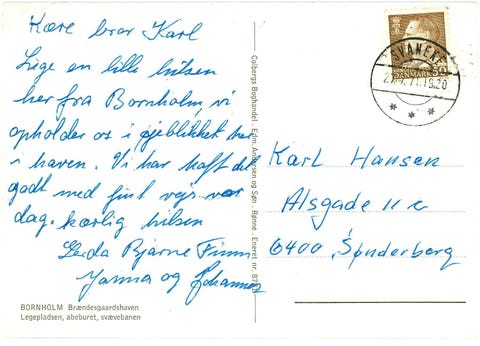 Kære bror Karl
Lige en lille hilsen
her fra Bornholm, vi
opholder os i øjeblikket her
i haven. Vi har haft det
godt med fint vejr hver
dag. kærlig hilsen
Bjarne Finn
og Johannes
BORNHOLM Brændesgaardshaven
Legepladsen, aberuret, svævebanen
Colbergs Boghandel . Edm. Andersen og Søn . Rønne . Eneret nr.
SVANEKE
DANMARK
Karl Hansen
Alsgade 11
6400 Sønderborg